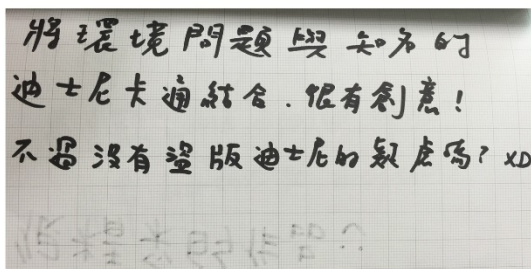 將環境問題與知名的
迪士尼卡通結合.很有創意!
不過沒有盜版迪士尼的疑慮嗎? XD